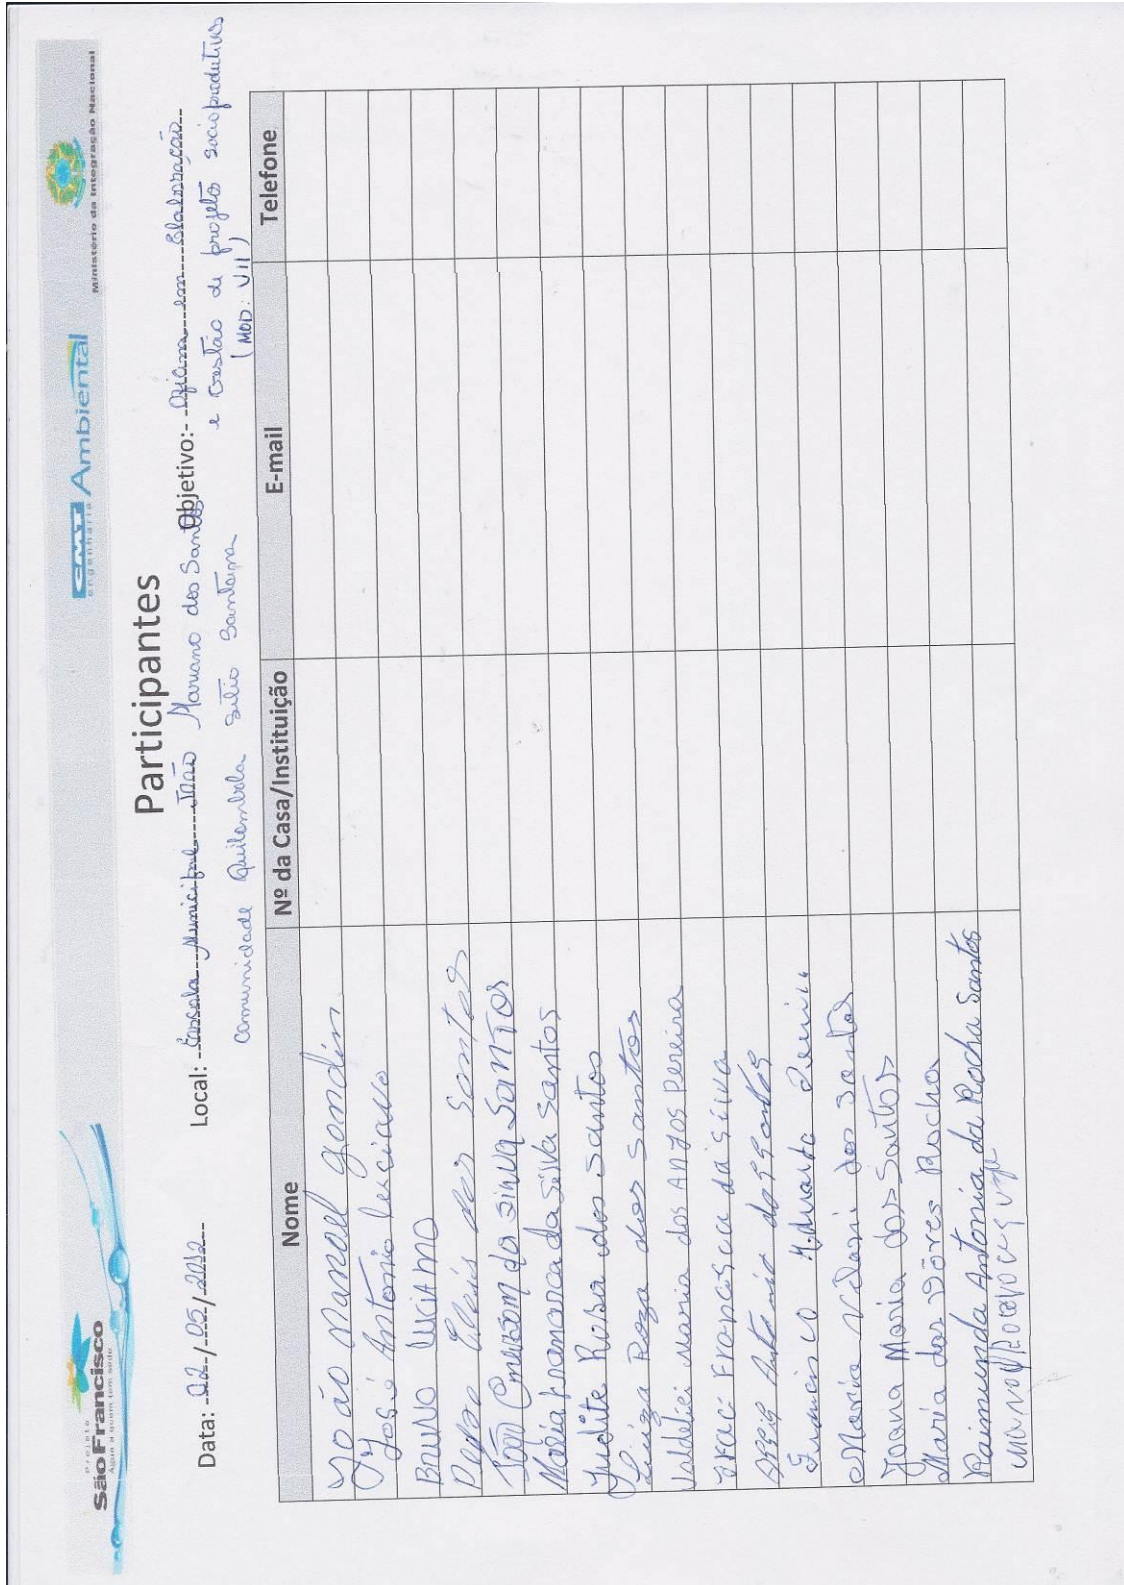 Projeto
São Francisco
Água a quem tem sede
CMT Ambiental
engenharia
Ministério da Integração Nacional
Participantes
Data: 02/05/2012 Local: Escola Municipal João Mariano dos Santos Objetivo: Oficina em Elaboração
Comunidade Quilombola Sitio Santana e Gestão de projeto socioprodutivos
(MOD: VII)
Nome Nº da Casa/Instituição E-mail Telefone
João Manoel Gondim
José Antonio Luciano
BRUNO LUCIANO
dos Santos
João Emerson da Silva Santos
Maria Francisca da Silva Santos
Judite Rosa dos Santos
Luiza Roza dos Santos
Valdeci Maria dos Anjos Pereira
Iraci Francisca da Silva
Assis Antonio dos Santos
Francisco
Maria Vidani dos Santos
Joana Maria dos Santos
Maria das Dôres Rocha
Raimunda Antonia da Rocha Santos